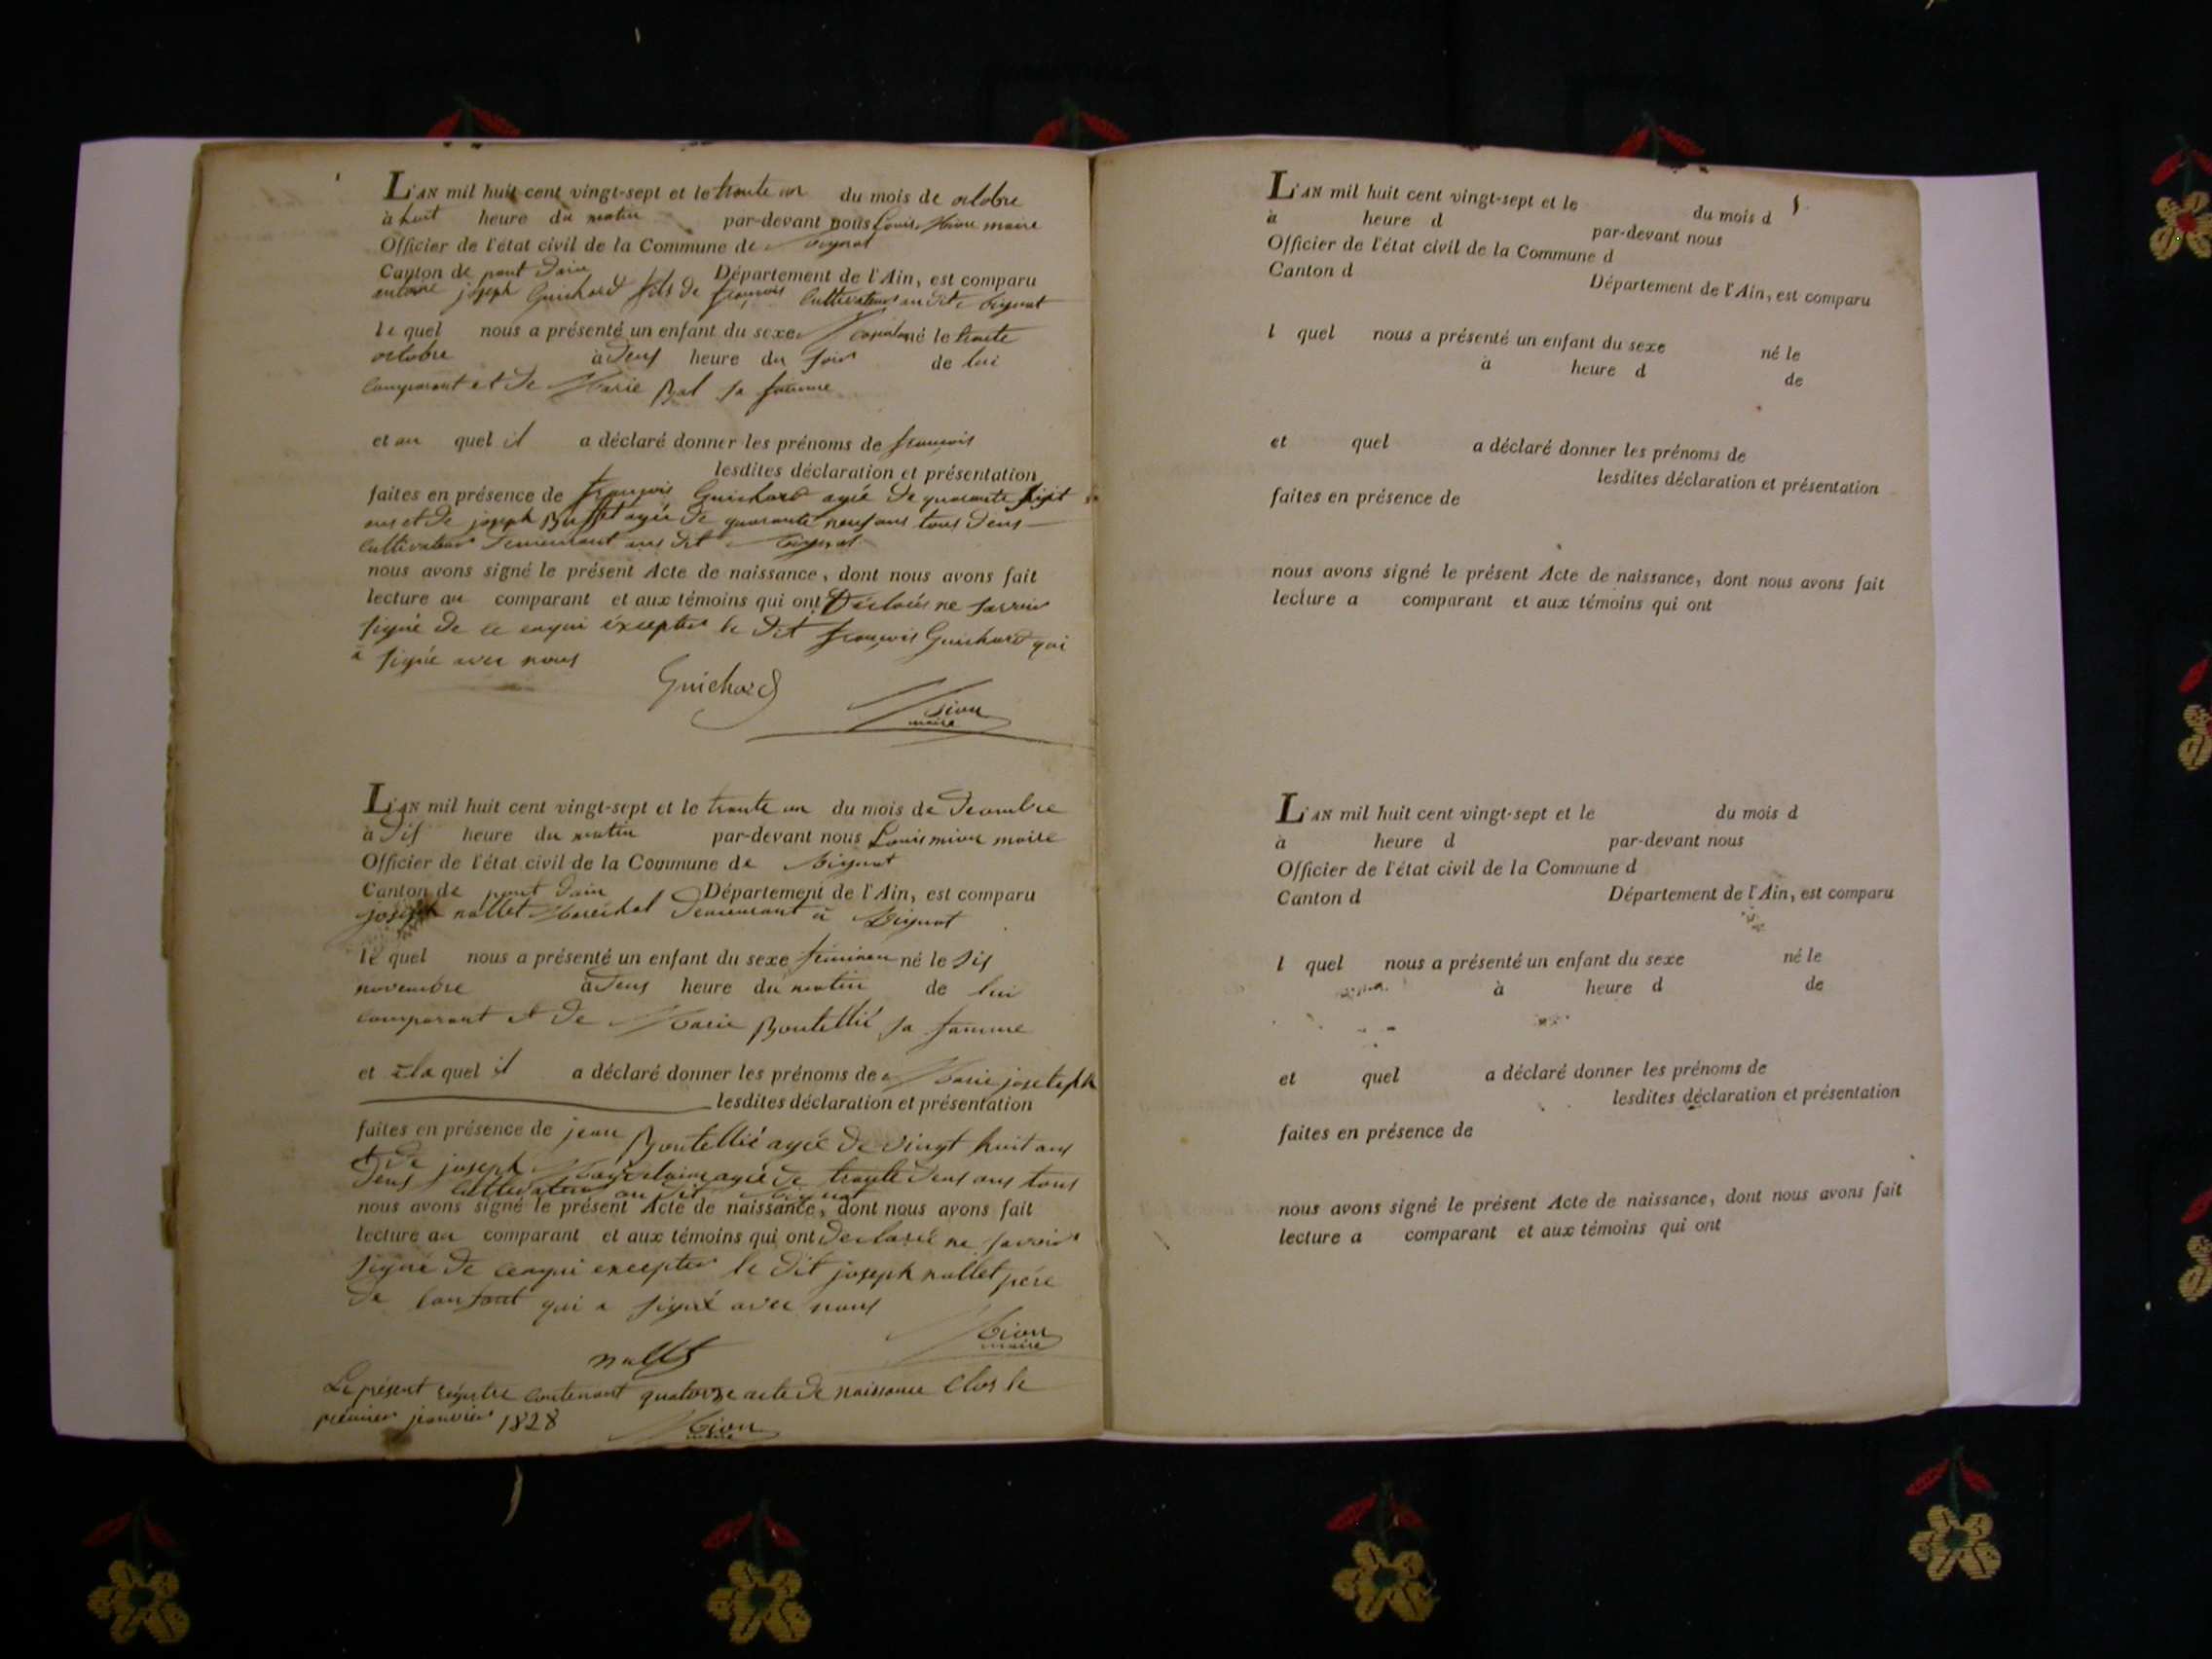 L'AN mil huit cent vingt-sept et le trente un du mois de octobre
à huit heure du matin par-devant nous Louis Mion maire
Officier de l'état civil de la Commune de
Canton de pont dain Département de l'Ain, est comparu
antoine joseph Guichard fils de françois Cultivateur au dit
le quel nous a présenté un enfant du sexe né le trente
octobre à deus heure du soir de lui
comparant et de Marie Bal sa famme
et au quel il a déclaré donner les prénoms de françois
lesdites déclaration et présentation
faites en présence de françois Guichard agée de quarante
ans et de joseph Buffet agée de quarante neuf ans tous deus
Cultivateur demeurant au dit
nous avons signé le présent Acte de naissance, dont nous avons fait
lecture au comparant et aux témoins qui ont ne savoir
signé de ce enqui excepter le dit françois Guichard qui
a signé avec nous
Guichard
Mion
maire
L'AN mil huit cent vingt-sept et le trente un du mois de
à dis heure du matin par-devant nous Louis mion maire
Officier de l'état civil de la Commune de
Canton de pont dain Département de l'Ain, est comparu
joseph nallet Marechal demeurant à
le quel nous a présenté un enfant du sexe né le dis
novembre à deus heure du matin de lui
comparant et de Marie Boutellié sa famme
et à la quel il a déclaré donner les prénoms de Marie
lesdites déclaration et présentation
faites en présence de jean Boutellié agée de vingt huit ans
et de joseph agée de trante deus ans tous
deus Cultivateur au dit
nous avons signé le présent Acte de naissance, dont nous avons fait
lecture au comparant et aux témoins qui ont ne savoir
signé de cenqui excepter le dit joseph nallet pére
de lanfant qui a signé avec nous
Mion
maire
nallet
Le présent registre contenant quatorze acte de naissance Clos le
premier janvier 1828
Mion
maire
L'AN mil huit cent vingt-sept et le du mois d
à heure d par-devant nous
Officier de l'état civil de la Commune d
Canton d Département de l'Ain, est comparu
l quel nous a présenté un enfant du sexe né le
à heure d de
et quel a déclaré donner les prénoms de
lesdites déclaration et présentation
faites en présence de
nous avons signé le présent Acte de naissance, dont nous avons fait
lecture a comparant et aux témoins qui ont
L'AN mil huit cent vingt-sept et le du mois d
à heure d par-devant nous
Officier de l'état civil de la Commune d
Canton d Département de l'Ain, est comparu
l quel nous a présenté un enfant du sexe né le
à heure d de
et quel a déclaré donner les prénoms de
lesdites déclaration et présentation
faites en présence de
nous avons signé le présent Acte de naissance, dont nous avons fait
lecture a comparant et aux témoins qui ont